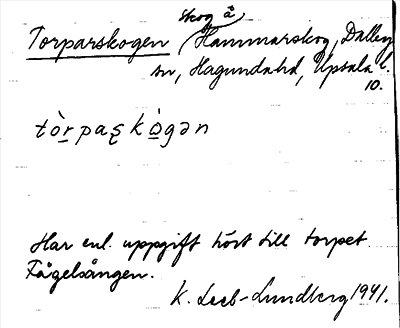 skog å
Torparskogen (Hammarskog, Dalby
sn, Hagundahd, Upsala l.
10.
tòrpaʂkògən
Har enl. uppgift hört till torpet
Fågelsången.
K. Leeb-Lundberg 1941.